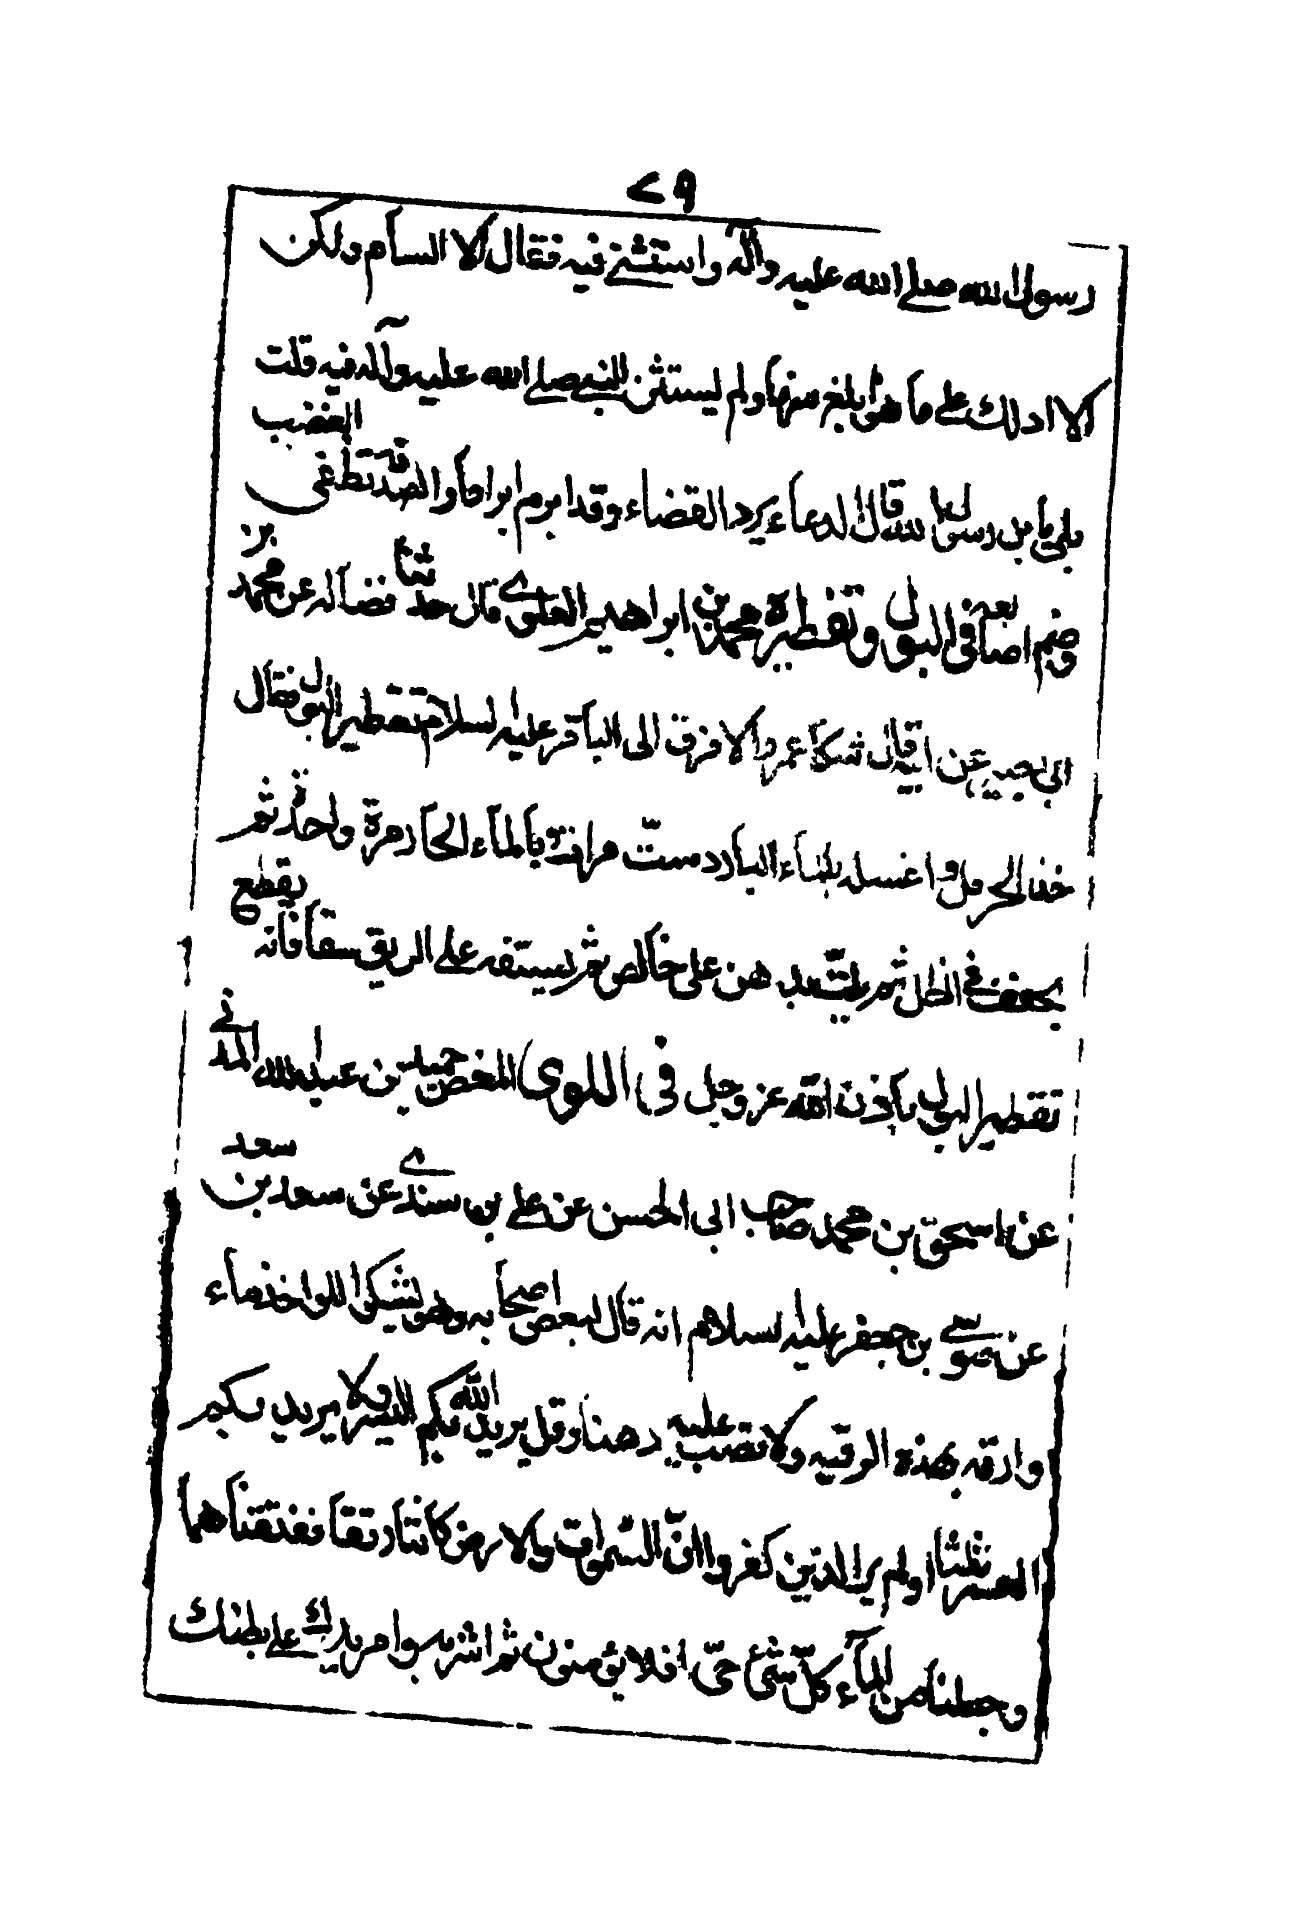 ٢٩
رسول الله صلى الله عليه وآله واستثنى فيه فقال الا السام ولكن
الا ادلك على ما هو ابلغ منها ولم يستثن النبي صلى الله عليه وآله فيه قلت
بلى يا بن رسول الله قال الدعاء يرد القضاء وقد ابرم ابراما والصدقة تطفى الغضب
وضم اصابعه في البول وتقطيره محمد بن ابراهيم العلوي قال حدثنا فضاله عن محمد بن
ابى بصير عن ابيه قال شكا عمرو الافرق الى الباقر عليه السلام تقطير البول فقال
خذ الحرمل واغسله بالماء البارد ست مرات بالماء الحار مرة واحدة ثم
يجفف في الظل ثم يلت بدهن على خالص ثم يستفه على الريق سفا فانه يقطع
تقطير البول باذن الله عز وجل في ( اللوى ) الخضر بن عبد الله المدنى
عن اسحق بن محمد صاحب ابى الحسن عن علي بن سندي عن سعد بن سعد
عن موسى بن جعفر عليه السلام انه قال لبعض اصحابه وهو يشكوا اللوا خذ ماء
وارقه بهذه الرقيه ولا تصب عليه دهنا وقل يريد الله بكم اليسر ولا يريد بكم
العسر ثلثا اولم ير الذين كفروا ان السموات والارض كانتا رتقا ففتقناهما
وجعلنا من الماء كل شئ حي افلا يؤمنون ثم اشربه وامر يدك على بطنك